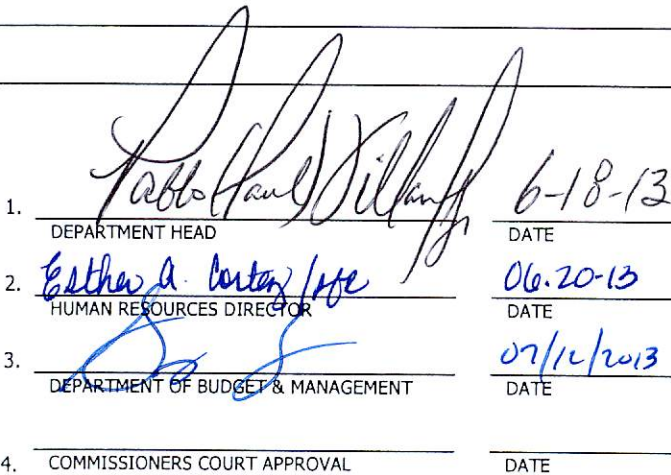 Pablo Paul Villarr Jr 6-18-13
1. DEPARTMENT HEAD DATE
Esther A. Cortez 06.20-13
2. HUMAN RESOURCES DIRECTOR DATE
07/12/2013
3. DEPARTMENT OF BUDGET & MANAGEMENT DATE
4. COMMISSIONERS COURT APPROVAL DATE